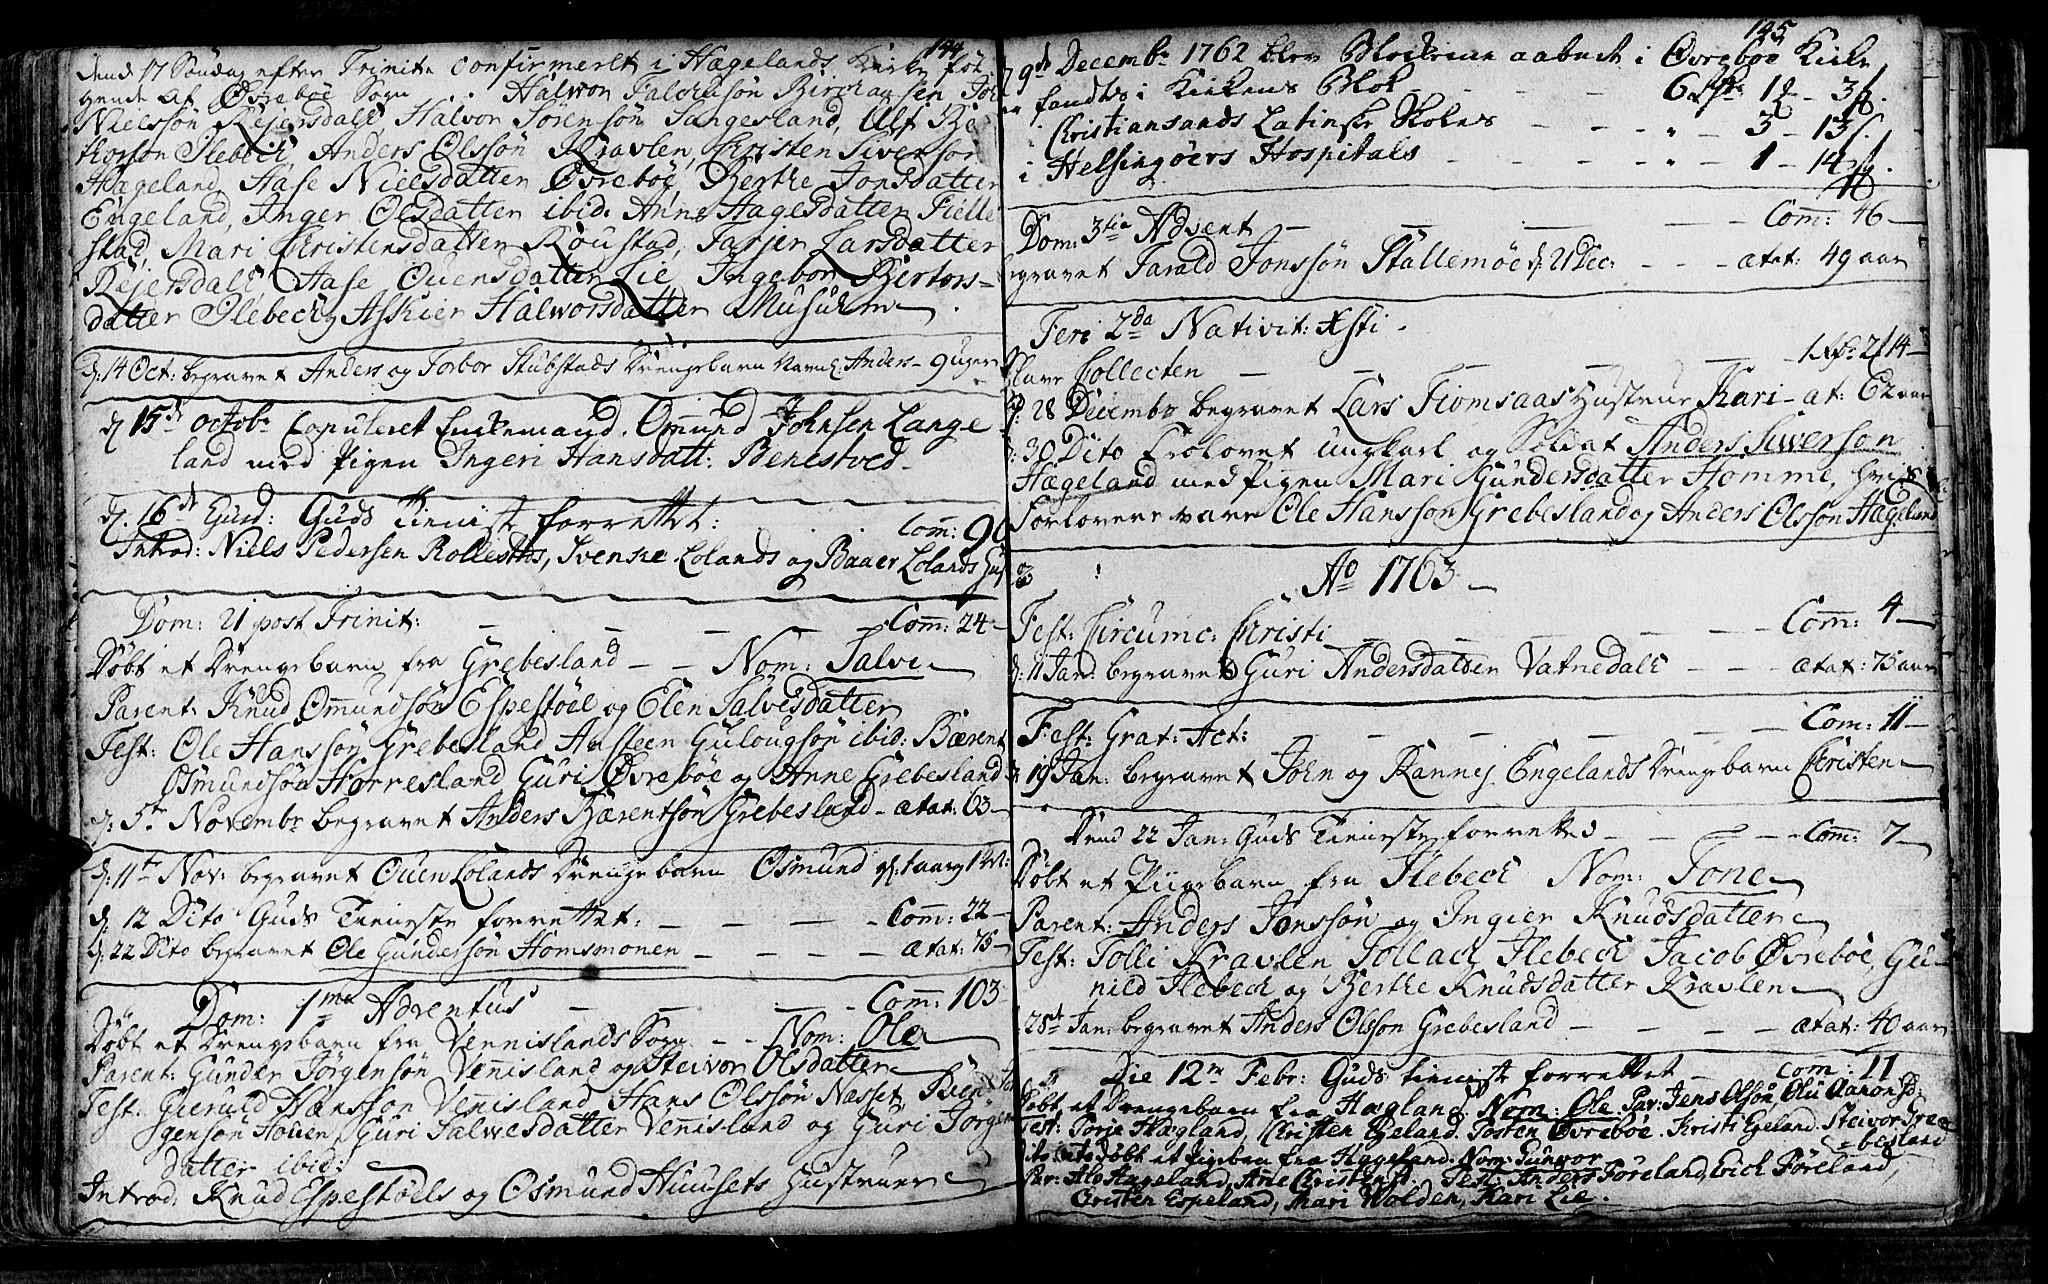 144
Dend 17 Søndag efter Trinit: Confirmeret i Hægelands Kirke føl
gende af Øvrebøe Sogn Halwor
Nielssøn Reiersdahl, Halvor Sørensøn Langesland, Ulf Bær
thorsøn Ilebech, Anders Olssøn Kravlen, Christen Siversøn
Hægeland, Aase Nielsdatter Øvrebøe, Berthe Jonsdatter
Engeland, Inger Olsdatter ibid: Anne Hagesdatter Fielle
stad, Mari Christensdatter Røustad, Tarjer Larsdatter
Reiersdall Aase Ouensdatter Lie, Ingebor Bertors-
datter Ilebech, Askier Halworsdatter
d: 14 Oct: begravet Anders og Torbor Stubstads Drengebarn Navnl: Anders - 9 uger
d 15de octobr Copuleret Enkemand Omund Johnsen Lange
land med Pigen Ingeri Hansdatt: Benestved
d. 16de Ejusd: Guds Tieniste forrettet: Com: 90
Introd: Niels Pedersen Rollesths, Svenke Lolands og Baaer Lolands
Dom: 21 post Trinit: - - - - Com: 24-
Døbt et Drengebarn fra Grebesland - - Nom: Salve
Parent: Knud Omundsøn Espestøel og Elen Salvesdatter
Test: Ole Hanssøn Grebesland Ansteen Gulougsøn ibid: Bærent
Osmundsøn Horresland Guri Øvrebøe og Anne Grebesland
d: 5te Novembr begravet Anders Bærentsøn Grebesland - ætat: 63-
d: 11te Nov: begravet Ouen Lolands Drengebarn Osmund gl: 1 aar og
d: 12 Dito Guds Tieneste forrettet: - - - Com: 22-
d: 22 Dito begravet Ole Gundersøn Homsmonen - - - ætat: 75-
Dom: 1ma Adventus - - - Com: 103
Døbt et Drengebarn fra Vennislands Sogn - - Nom: Ole
Parent: Gunder Jørgensøn Vennisland og Steivor Olsdatter
Test: Gieruld Hanssøn Vennisland Hans Olssøn Næsset
gensøn Houen, Guri Salwesdatter Vennisland og Guri Jørgens
datter ibid:
Introd. Knud Espestøels og Osmund Huusets Hustruer
145
d 9de Decembr 1762 blev Blokkene aabnet i Øvrebøe Kirke
fandtes i Kirkens Blok - - - - 6 - 3 s.
Christiansands Latinske Skoles - - - " - 3 - 13 s.
i Helsingøers Hospitals - - - - " - 1 - 14 s.
Dom: 3tia Advent - - - - Com: 16-
begravet Tarald Jonssøn Stallemøe d: 21 Dec: - - - ætat: 49 aar
Feri 2da Nativit: Xsti.
Collecten - - - -
d: 28 Decembr begravet Lars Fiomsaas Hustrue Kari - æt: 62 aar
d: 30 Dito Trolovet ungkarl og Soldat Anders Siversøn
Hægeland med Pigen Mari Gundersdatter Homme, hvis
Forlovere vare Ole Hanssøn Grebesland og Anders Olssøn Hægeland
Ao 1763
Fest: Circumc: Christi - - - - Com: 4-
d: 11 Jan: begravet Guri Andersdatter Vatnedall - - - ætat: 75 aar
Fest: Grat: Act: - - - - Com: 11-
d: 19 Jan: begravet John og Rannei Engelands Drengebarn Christen
Dend 22 Jan: Guds Tieneste forretted - - - Com: 7-
Døbt et Piigebarn fra Ilebech Nom: Tone
Parent: Anders Jonssøn og Ingier Knudsdatter
Test: Tolli Kravlen Tollach Ilebech Jacob Øvrebøe, Gu-
nild Ilebech og Berthe Knudsdatter Kravlen
28de Jan: begravet Anders Olssøn Grebesland - - - ætat: 40 aar
Die 12te Febr: Guds tieniste forrettet - - Com: 11
Døbt et Drengebarn fra Hægland Nom: Ole. Par: Jens Olssøn,
Test: Torje Hægland, Christen Egeland. Tosten Øvrebøe. Kristi Egeland. Steivor Gre
besland
Dito døbt et fra Hægeland. Nom: Gunvor
Par: Hægeland, Anne Test: Anders Føreland, Erich Føreland,
Christen Espeland, Mari Wolden, Kari Lie.